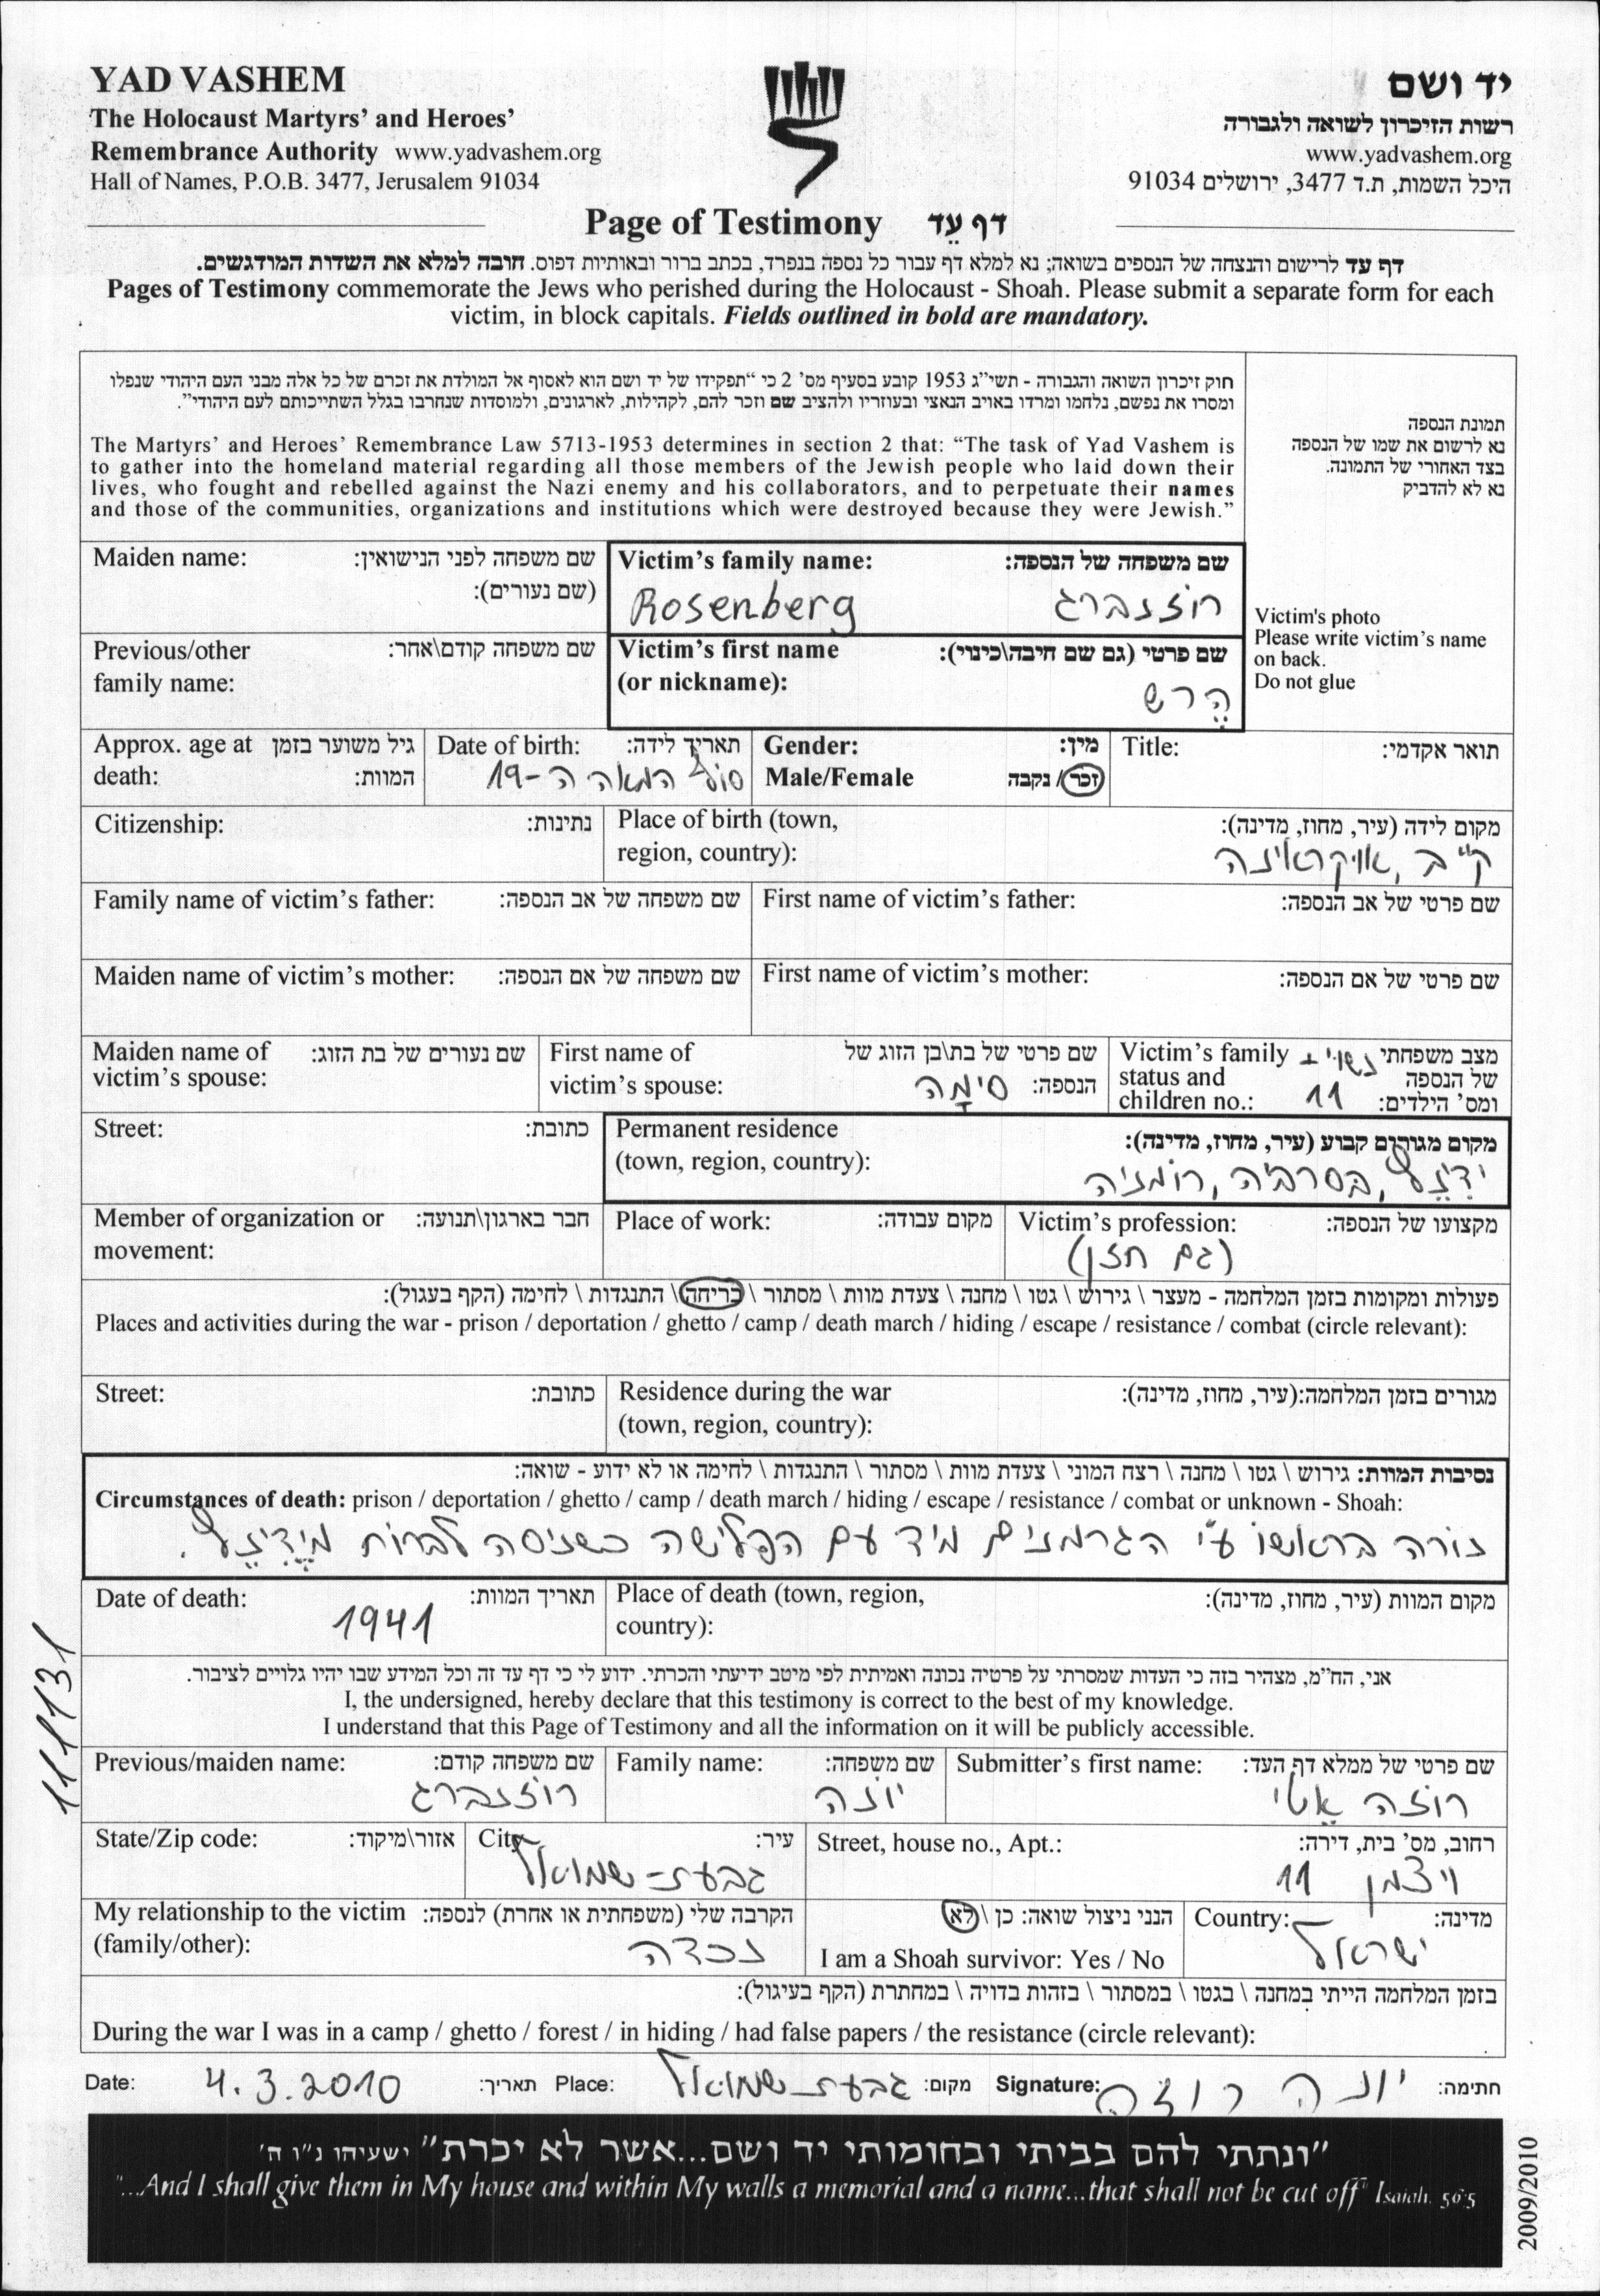 YAD VASHEM
The Holocaust Martyrs' and Heroes'
Remembrance Authority www.yadvashem.org
Hall of Names, P.O.B. 3477, Jerusalem 91034
יד ושם
רשות הזיכרון לשואה ולגבורה
www.yadvashem.org
היכל השמות, ת.ד 3477, ירושלים 91034
Page of Testimony דף עֵד
דף עד לרישום והנצחה של הנספים בשואה; נא למלא דף עבור כל נספה בנפרד, בכתב ברור ובאותיות דפוס. חובה למלא את השדות המודגשים.
Pages of Testimony commemorate the Jews who perished during the Holocaust - Shoah. Please submit a separate form for each
victim, in block capitals. Fields outlined in bold are mandatory.
חוק זיכרון השואה והגבורה - תשי"ג 1953 קובע בסעיף מס' 2 כי "תפקידו של יד ושם הוא לאסוף אל המולדת את זכרם של כל אלה מבני העם היהודי שנפלו
ומסרו את נפשם, נלחמו ומרדו באויב הנאצי ובעוזריו ולהציב שם וזכר להם, לקהילות, לארגונים, ולמוסדות שנחרבו בגלל השתייכותם לעם היהודי".
The Martyrs' and Heroes' Remembrance Law 5713-1953 determines in section 2 that: "The task of Yad Vashem is
to gather into the homeland material regarding all those members of the Jewish people who laid down their
lives, who fought and rebelled against the Nazi enemy and his collaborators, and to perpetuate their names
and those of the communities, organizations and institutions which were destroyed because they were Jewish."
תמונת הנספה
נא לרשום את שמו של הנספה
בצד האחורי של התמונה.
נא לא להדביק
Victim's photo
Please write victim's name
on back.
Do not glue
Maiden name: שם משפחה לפני הנישואין:
(שם נעורים):
Victim's family name: שם משפחה של הנספה:
Rosenberg רוזנברג
Previous/other שם משפחה קודם\אחר:
family name:
Victim's first name שם פרטי (גם שם חיבה\כינוי):
(or nickname):
הֶרש
Approx. age at גיל משוער בזמן
death: המוות:
Date of birth: תאריך לידה:
סוף המאה ה-19
Gender: מין:
Male/Female זכר / נקבה
Title: תואר אקדמי:
Citizenship: נתינות:
Place of birth (town, מקום לידה (עיר, מחוז, מדינה):
region, country):
ק"ב, אוקראינה
Family name of victim's father: שם משפחה של אב הנספה:
First name of victim's father: שם פרטי של אב הנספה:
Maiden name of victim's mother: שם משפחה של אם הנספה:
First name of victim's mother: שם פרטי של אם הנספה:
Maiden name of שם נעורים של בת הזוג:
victim's spouse:
First name of שם פרטי של בת\בן הזוג של
victim's spouse: הנספה: סימָה
Victim's family מצב משפחתי נשוי +
status and של הנספה
children no.: ומס' הילדים: 11
Street: כתובת:
Permanent residence מקום מגורים קבוע (עיר, מחוז, מדינה):
(town, region, country):
ידִינֶץ, בסרביה, רומניה
Member of organization or חבר בארגון\תנועה:
movement:
Place of work: מקום עבודה:
Victim's profession: מקצועו של הנספה:
(גם חזן)
פעולות ומקומות בזמן המלחמה - מעצר \ גירוש \ גטו \ מחנה \ צעדת מוות \ מסתור \ בריחה \ התנגדות \ לחימה (הקף בעגול):
Places and activities during the war - prison / deportation / ghetto / camp / death march / hiding / escape / resistance / combat (circle relevant):
Street: כתובת:
Residence during the war מגורים בזמן המלחמה:(עיר, מחוז, מדינה):
(town, region, country):
נסיבות המוות: גירוש \ גטו \ מחנה \ רצח המוני \ צעדת מוות \ מסתור \ התנגדות \ לחימה או לא ידוע - שואה:
Circumstances of death: prison / deportation / ghetto / camp / death march / hiding / escape / resistance / combat or unknown - Shoah:
נורה בראשו ע"י הגרמנים מיד עם הפלישה כשניסה לברוח מיֶדִינֶץ.
Date of death: תאריך המוות:
1941
Place of death (town, region, מקום המוות (עיר, מחוז, מדינה):
country):
אני, הח"מ, מצהיר בזה כי העדות שמסרתי על פרטיה נכונה ואמיתית לפי מיטב ידיעתי והכרתי. ידוע לי כי דף עד זה וכל המידע שבו יהיו גלויים לציבור.
I, the undersigned, hereby declare that this testimony is correct to the best of my knowledge.
I understand that this Page of Testimony and all the information on it will be publicly accessible.
Previous/maiden name: שם משפחה קודם:
רוזנברג
Family name: שם משפחה:
יונה
Submitter's first name: שם פרטי של ממלא דף העד:
רוזה אֶטי
State/Zip code: אזור\מיקוד:
City: עיר:
גבעת-שמואל
Street, house no., Apt.: רחוב, מס' בית, דירה:
ויצמן 11
My relationship to the victim הקרבה שלי (משפחתית או אחרת) לנספה:
(family/other): נכדה
הנני ניצול שואה: כן \ לא
I am a Shoah survivor: Yes / No
Country: מדינה:
ישראל
בזמן המלחמה הייתי במחנה \ בגטו \ במסתור \ בזהות בדויה \ במחתרת (הקף בעיגול):
During the war I was in a camp / ghetto / forest / in hiding / had false papers / the resistance (circle relevant):
Date: 4.3.2010 תאריך: Place: גבעת-שמואל מקום: Signature: יונה רוזה חתימה:
"ונתתי להם בביתי ובחומותי יד ושם...אשר לא יכרת" ישעיהו נ"ו ה'
"...And I shall give them in My house and within My walls a memorial and a name...that shall not be cut off" Isaiah, 56:5
111131
2009/2010